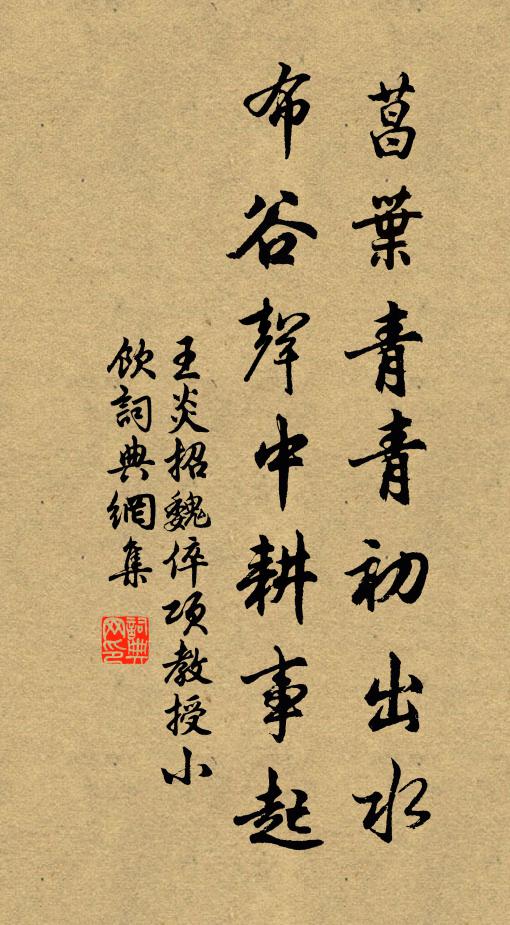 菖葉青青初出水
布谷聲中耕事起
王炎招魏倅項教授小
飲詞典網集
詞典网印